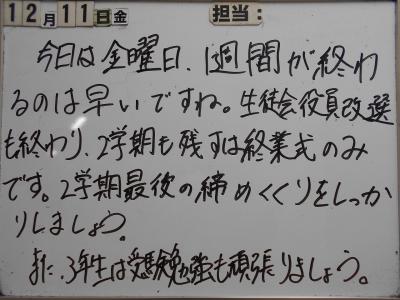 12月11日金 担当:
今日は金曜日、1週間が終わ
るのは早いですね。生徒会役員改選
も終わり、2学期も残すは終業式のみ
です。2学期最後の締めくくりをしっか
りしましょう。
また、3年生は受験勉強も頑張りましょう。